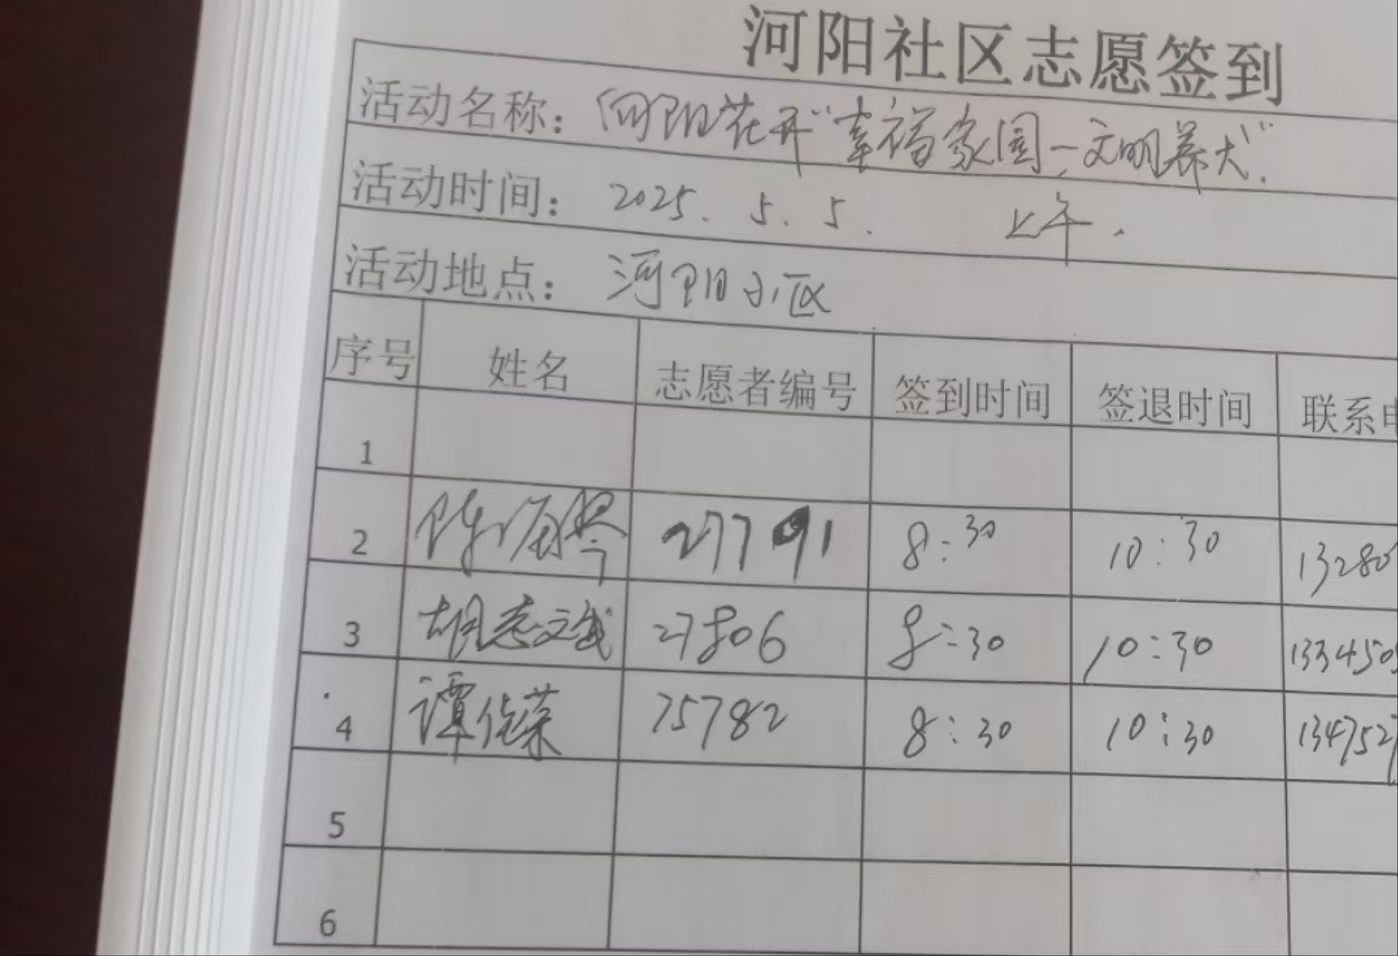 河阳社区志愿签到
活动名称：向阳花开"幸福家园,文明养犬".
活动时间：2025.5.5. 上午.
活动地点：河阳小区
序号 姓名 志愿者编号 签到时间 签退时间 联系电
1
2 27791 8:30 10:30 13280
3 胡志文 27806 8:30 10:30 1334505
4 谭 75782 8:30 10:30 134752
5
6